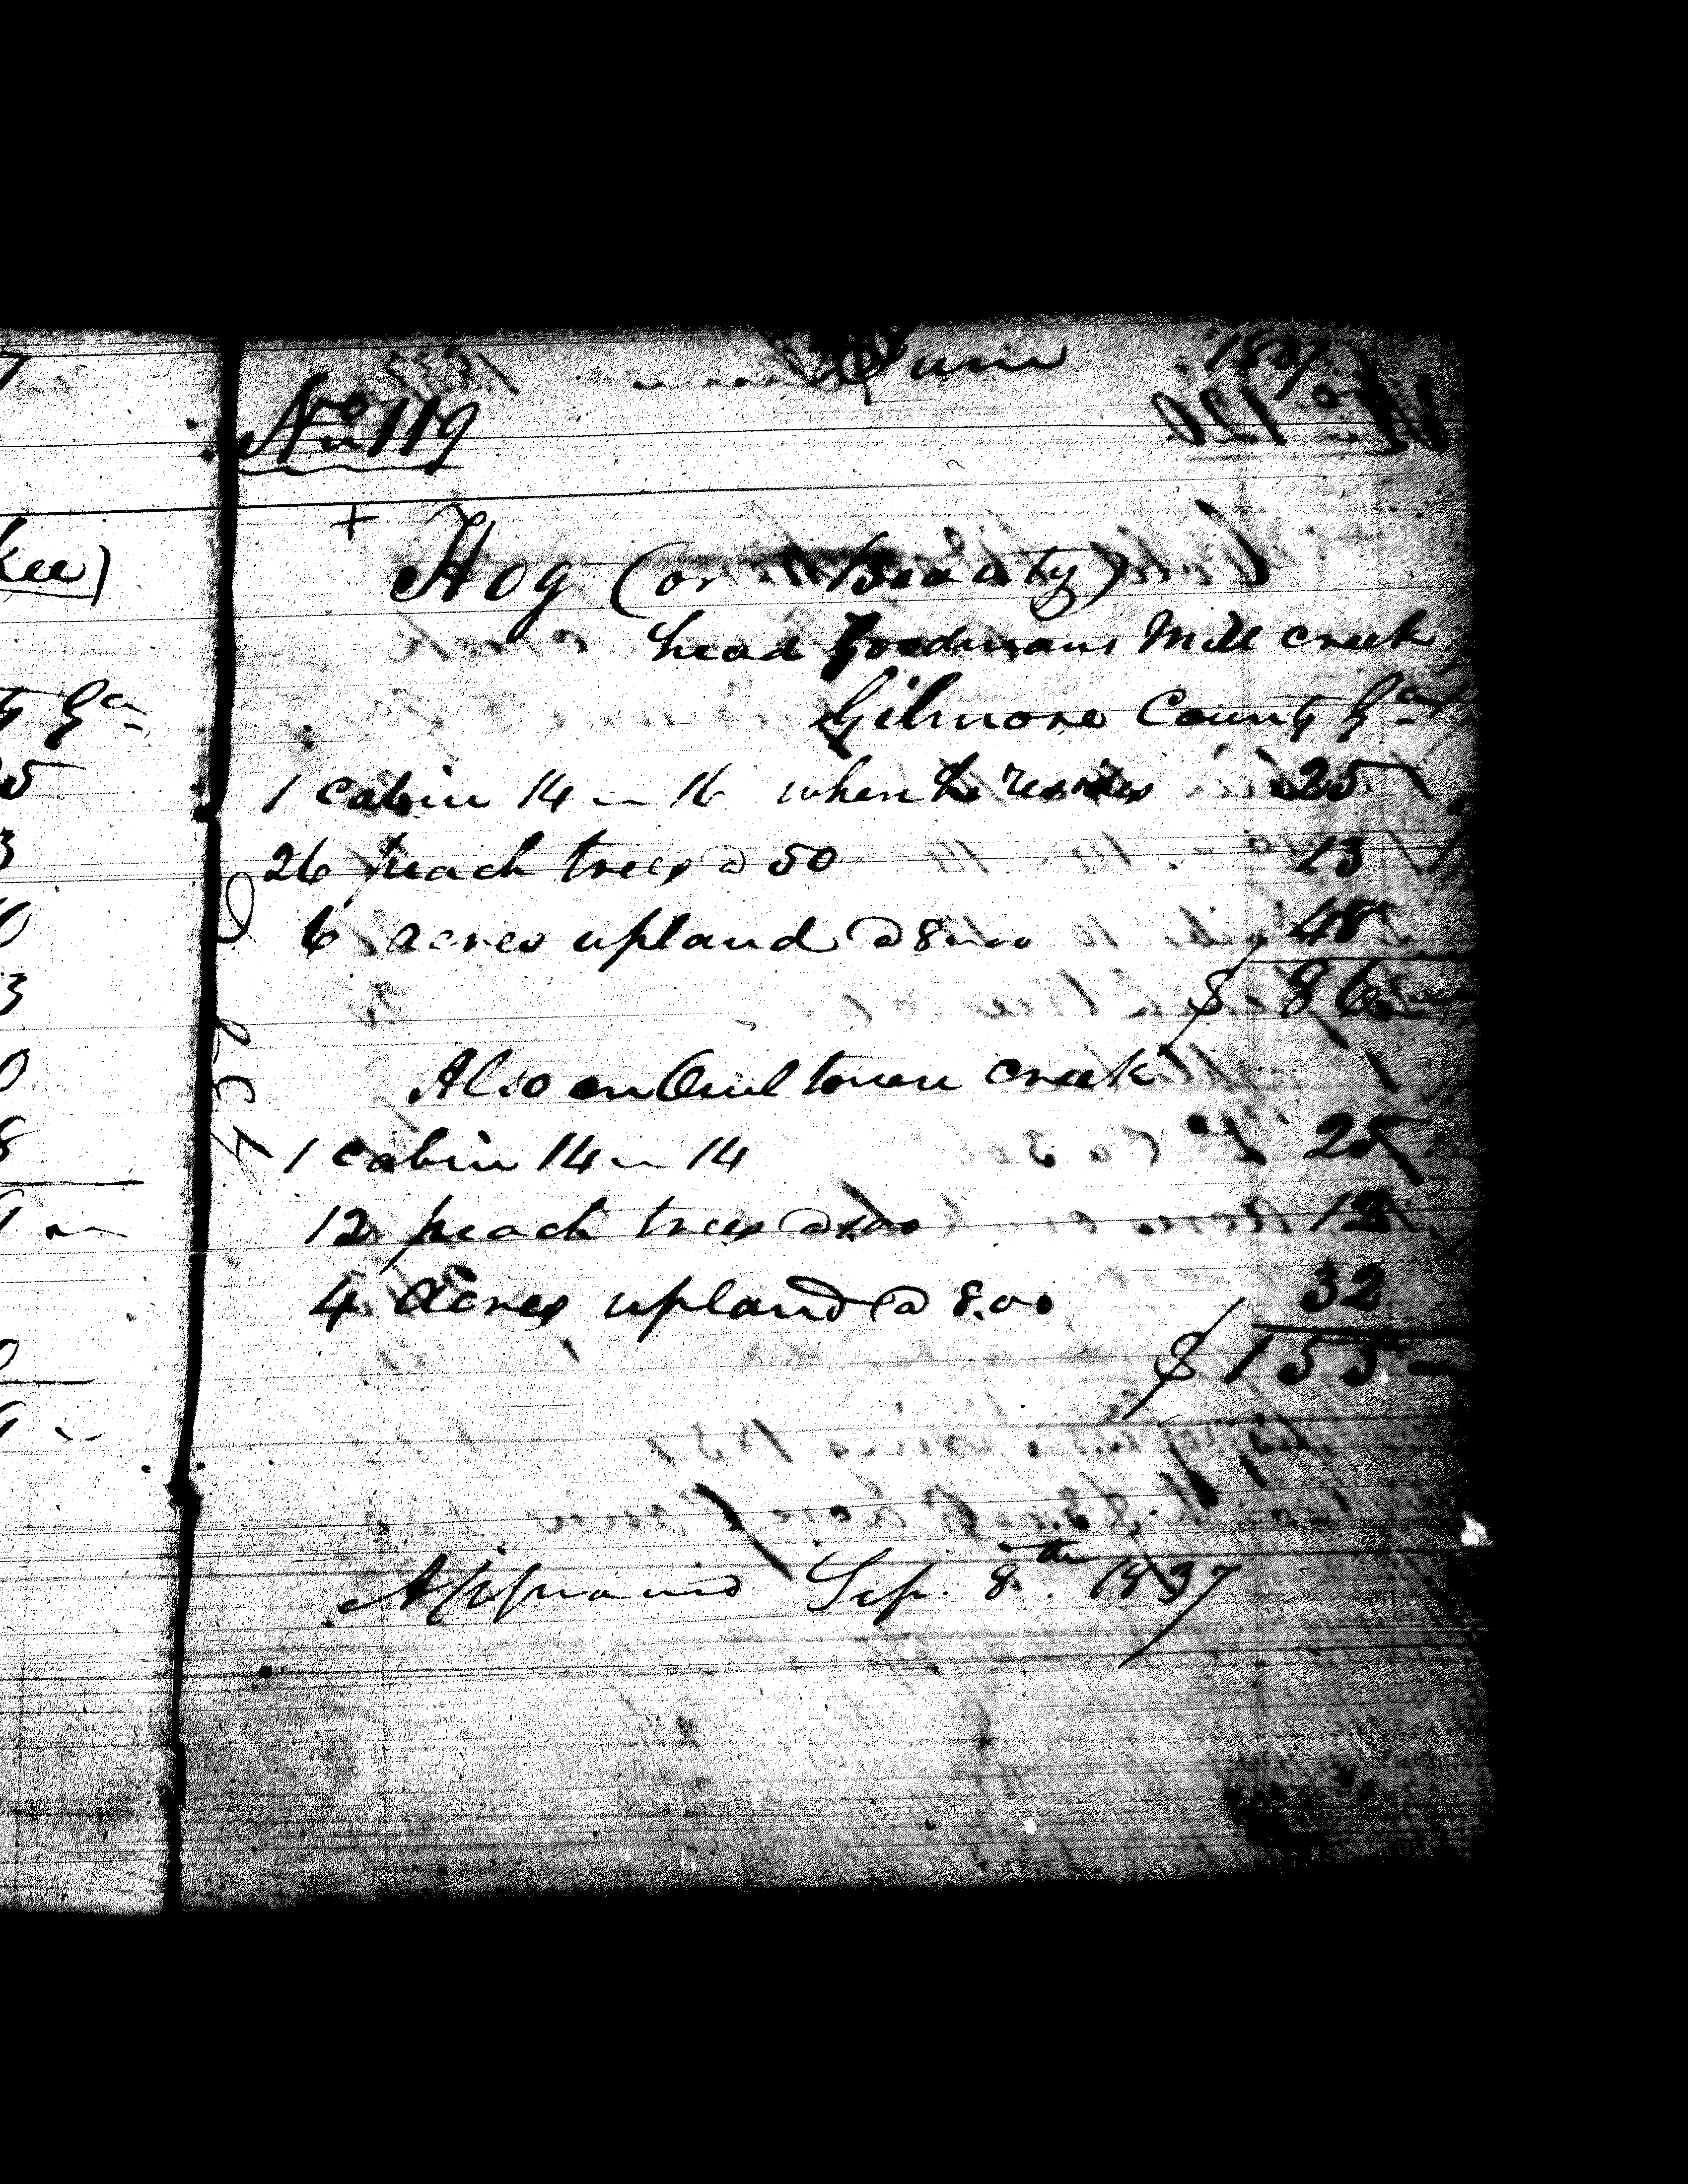 1837
No 119
+
Hog (or Beauty)
head Goodmans Mill creek
Gilmore County Ga
1 cabin 14 - 16 where he resides 25
26 peach trees @ 50 13
6 acres upland @ 8.00 48
$ 86
Also on Owl town creek
1 cabin 14 - 14 25
12 peach trees @ 12
4 acres upland @ 8.00 32
$ 155
Sep. 8th 1837
kee)
Ga